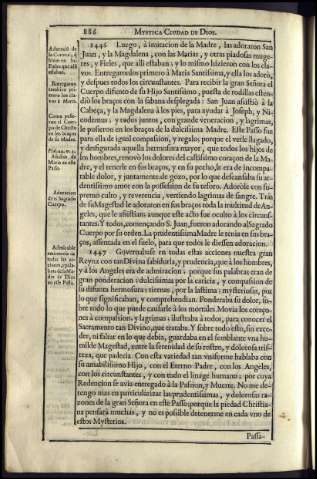 886 MYSTICA CIUDAD DE DIOS.
1446 Luego, à imitacion de la Madre, la adoraron San
Juan, y la Magdalena, con las Marias, y otras piadosas muge-
res, y Fieles, que alli estaban; y lo mismo hizieron con los cla-
vos. Entregaronlos primero à Maria Santissima, y ella los adorò,
y despues todos los circunstantes. Para recibir la gran Señora el
Cuerpo difunto de su Hijo Santissimo, puesta de rodillas esten-
diò los braços con la sabana desplegada: San Juan assistiò à la
Cabeça, y la Magdalena à los pies, para ayudar à Joseph, y Ni-
codemus; y todos juntos, con grande veneracion, y lagrimas,
le pusieron en los braços de la dulcissima Madre. Este Passo fue
para ella de igual compassion, y regalo; porque el verle llagado,
y desfigurada aquella hermosura mayor, que todos los hijos de
los hombres, renovò los dolores del castissimo coraçon de la Ma-
dre, y el tenerle en sus braços, y en su pecho, le era de incompara-
ble dolor, y juntamente de gozo, por lo que descansaba su ar-
dentissimo amor con la possession de su tesoro. Adoròle con supre-
mo culto, y reverencia, vertiendo lagrimas de sangre. Tràs
de su Magestad le adoraron en sus braços toda la multitud de Ange-
les, que le assistian; aunque este acto fue oculto à los circuns-
tantes. Y todos, començando S. Juan, fueron adorando al Sagrado
Cuerpo por su orden. La prudentissima Madre le tenia en sus bra-
ços, assentada en el suelo, para que todos le diessen adoracion.
1447 Governabase en todas estas acciones nuestra gran
Reyna con tan Divina sabiduria, y prudencia, que à los hombres,
y à los Angeles era de admiracion; porque sus palabras eran de
gran ponderacion, dulcissimas por la caricia, y compassion de
su difunta hermosura; tiernas, por la lastima; mysteriosas, por
lo que significaban, y comprehendian. Ponderaba su dolor, so-
bre todo lo que puede causarle à los mortales. Movia los coraço-
nes à compassion, y lagrimas; ilustraba à todos, para conocer el
Sacramento tan Divino, que trataba. Y sobre todo esto, sin exce-
der, ni faltar en lo que debia, guardaba en el semblante una hu-
milde Magestad, entre la serenidad de su rostro, y dolorosa triste-
za, que padecia. Con esta variedad tan uniforme hablaba con
su amabilissimo Hijo, con el Eterno Padre, con los Angeles,
con los circunstantes, y con todo el linage humano; por cuya
Redencion se avia entregado à la Passion, y Muerte. No me de-
tengo mas en particularizar las prudentissimas, y dolorosas ra-
zones de la gran Señora en este Passo; porque la piedad Christia-
na pensarà muchas, y no es possible detenerme en cada uno de
estos Mysterios.
Passa-